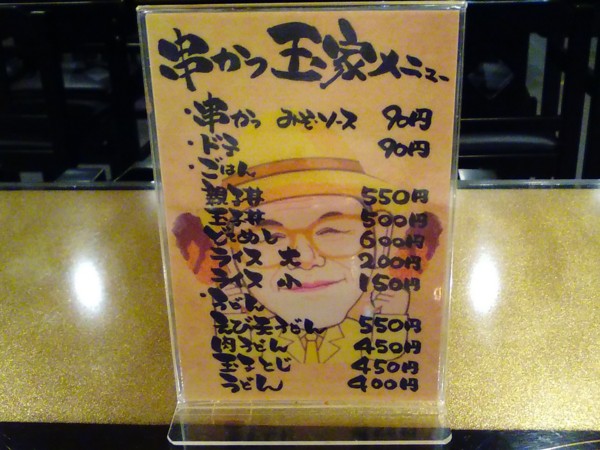 串かつ玉家メニュー
・串かつ みそ・ソース 90円
・ド子 90円
・ごはん
親子丼 550円
玉子丼 500円
どてめし 600円
ライス 大 200円
ライス 小 150円
・うどん
えび天うどん 550円
肉うどん 450円
玉子とじ 450円
うどん 400円